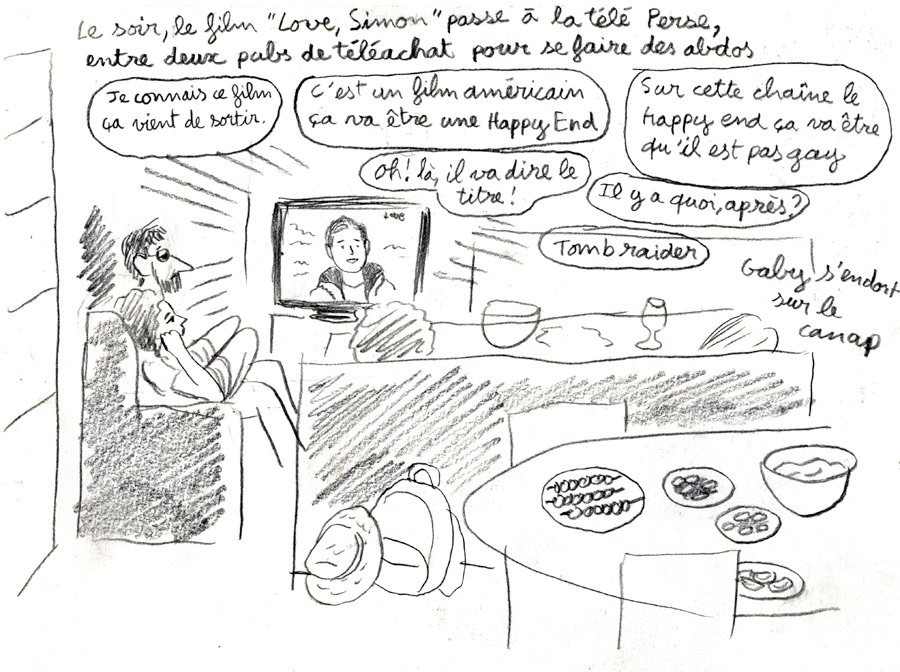 Le soir, le film "Love, Simon" passe à la télé Perse,
entre deux pubs de téléachat pour se faire des abdos
Je connais ce film
ça vient de sortir.
C'est un film américain
ça va être une Happy End
Sur cette chaîne le
Happy end ça va être
qu'il est pas gay
Oh! là, il va dire le
titre!
Il y a quoi, après?
Tomb raider
Love
Gaby s'endort
sur le
canap